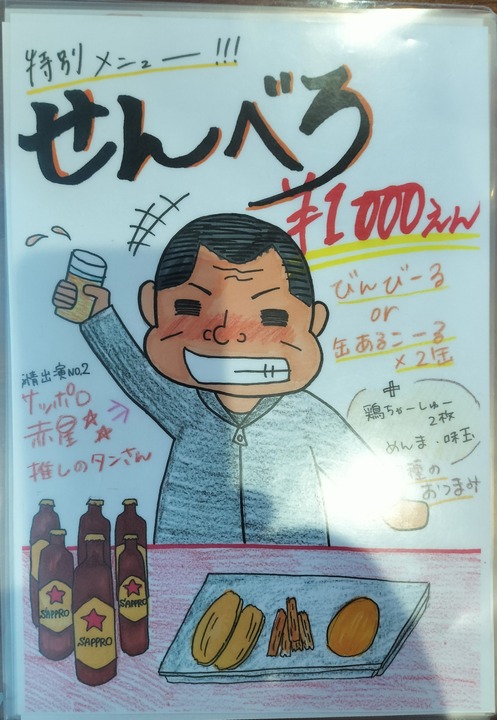 特別メニュー!!!
せんべろ
¥1000えん
びんびーる
or
缶あるこーる
×2缶
+
鶏ちゃーしゅー
2枚
めんま・味玉
種の
おつまみ
情出演NO.2
サッポロ
赤星
推しのタンさん
SAPPRO
SAPPRO
SAPPRO